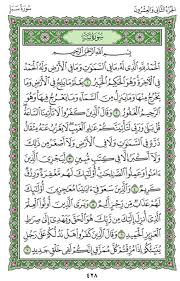 الجزء الثاني والعشرون سورة سبإ
سورة سبإ
بسم الله الرحمن الرحيم
الحمد لله الذي له ما في السموت وما في الأرض وله الحمد
في الآخرة وهو الحكيم الخبير ١ يعلم ما يلج في الأرض وما
يخرج منها وما ينزل من السماء وما يعرج فيها وهو
الرحيم الغفور ٢ وقال الذين كفروا لا تأتينا الساعة
قل بلى وربي لتأتينكم علم الغيب لا يعزب عنه مثقال
ذرة في السموت ولا في الأرض ولا أصغر من ذلك
ولا أكبر إلا في كتب مبين ٣ ليجزي الذين ءامنوا
وعملوا الصلحت أولئك لهم مغفرة ورزق
كريم ٤ والذين سعو في ءايتنا معجزين أولئك
لهم عذاب من رجز أليم ٥ ويرى الذين أوتوا العلم
الذي أنزل إليك من ربك هو الحق ويهدي إلى صرط
العزيز الحميد ٦ وقال الذين كفروا هل ندلكم على رجل
ينبئكم إذا مزقتم كل ممزق إنكم لفي خلق جديد ٧
٤٢٨